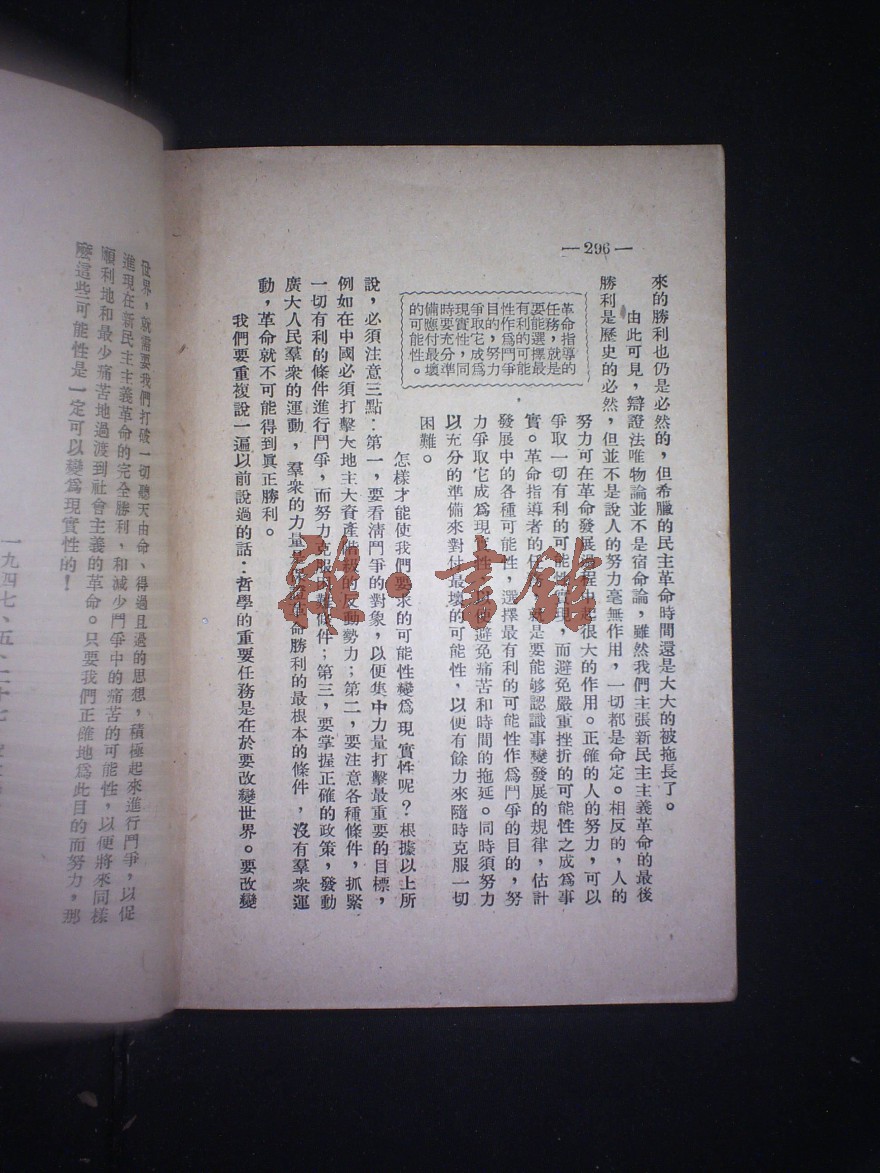 —296—
來的勝利也仍是必然的，但希臘的民主革命時間還是大大的被拖長了。
由此可見，辯證法唯物論並不是宿命論，雖然我們主張新民主主義革命的最後
勝利是歷史的必然，但並不是說人的努力毫無作用，一切都是命定。相反的，人的
努力可在革命發展過程中起很大的作用。正確的人的努力，可以
爭取一切有利的可能性實現，而避免嚴重挫折的可能性之成爲事
實。革命指導者的任務，就是要能够認識事變發展的規律，估計
發展中的各種可能性，選擇最有利的可能性作爲鬥爭的目的，努
力爭取它成爲現實性，以便避免痛苦和時間的拖延。同時須努力
以充分的準備來對付最壞的可能性，以便有餘力來隨時克服一切
困難。
革命指導的
任務，就是
要能選擇最
有利的可能
性作爲鬥爭
目的，努力
爭取它成爲
現實性，同
時要充分準
備應付最壞
的可能性。
怎樣才能使我們要求的可能性變爲現實性呢？根據以上所
說，必須注意三點：第一，要看淸鬥爭的對象，以便集中力量打擊最重要的目標，
例如在中國必須打擊大地主大資產階級的反動勢力；第二，要注意各種條件，抓緊
一切有利的條件進行鬥爭，而努力克服困難條件；第三，要掌握正確的政策，發動
廣大人民羣衆的運動，羣衆的力量是保證革命勝利的最根本的條件，沒有羣衆運
動，革命就不可能得到眞正勝利。
我們要重複說一遍以前說過的話：哲學的重要任務是在於要改變世界。要改變
世界，就需要我們打破一切聽天由命、得過且過的思想，積極起來進行鬥爭，以促
進現在新民主主義革命的完全勝利，和減少鬥爭中的痛苦的可能性，以便將來同樣
順利地和最少痛苦地過渡到社會主義的革命。只要我們正確地爲此目的而努力，那
麼這些可能性是一定可以變爲現實性的！
一九四七、五、二十七
雜·書館